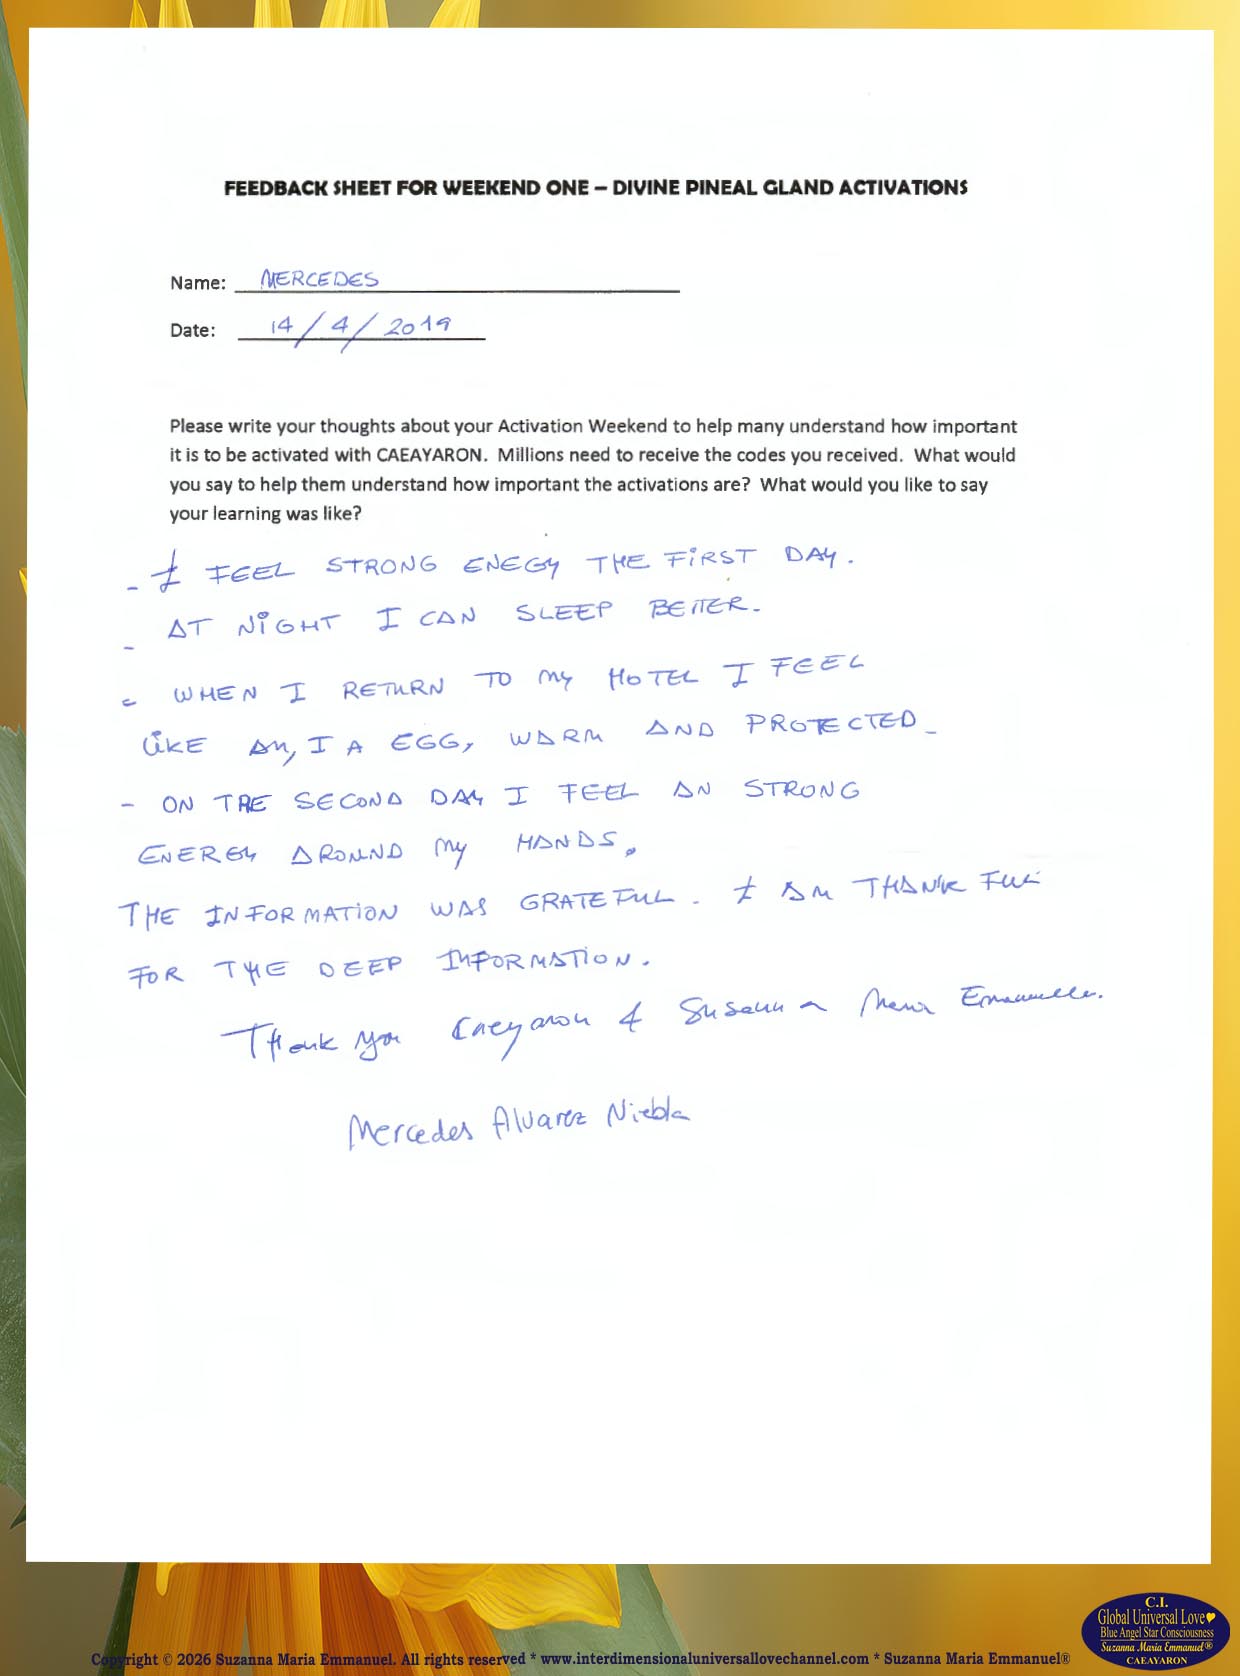 FEEDBACK SHEET FOR WEEKEND ONE – DIVINE PINEAL GLAND ACTIVATIONS
Name: MERCEDES
Date: 14/4/2019
Please write your thoughts about your Activation Weekend to help many understand how important
it is to be activated with CAEAYARON. Millions need to receive the codes you received. What would
you say to help them understand how important the activations are? What would you like to say
your learning was like?
- I FEEL STRONG ENEGY THE FIRST DAY.
- AT NIGHT I CAN SLEEP BETTER.
- WHEN I RETURN TO MY HOTEL I FEEL
LIKE AM, I A EGG, WARM AND PROTECTED_
- ON THE SECOND DAY I FEEL AN STRONG
ENERGY AROUND MY HANDS.
THE INFORMATION WAS GRATEFUL. I AM THANKFUL
FOR THE DEEP INFORMATION.
Thank you Caeyaron & Susanna Maria Emanuelle.
Mercedes Alvarez Niebla
C.I.
Global Universal Love
Blue Angel Star Consciousness
Suzanna Maria Emmanuel®
CAEAYARON
Copyright © 2026 Suzanna Maria Emmanuel. All rights reserved * www.interdimensionaluniversallovechannel.com * Suzanna Maria Emmanuel®